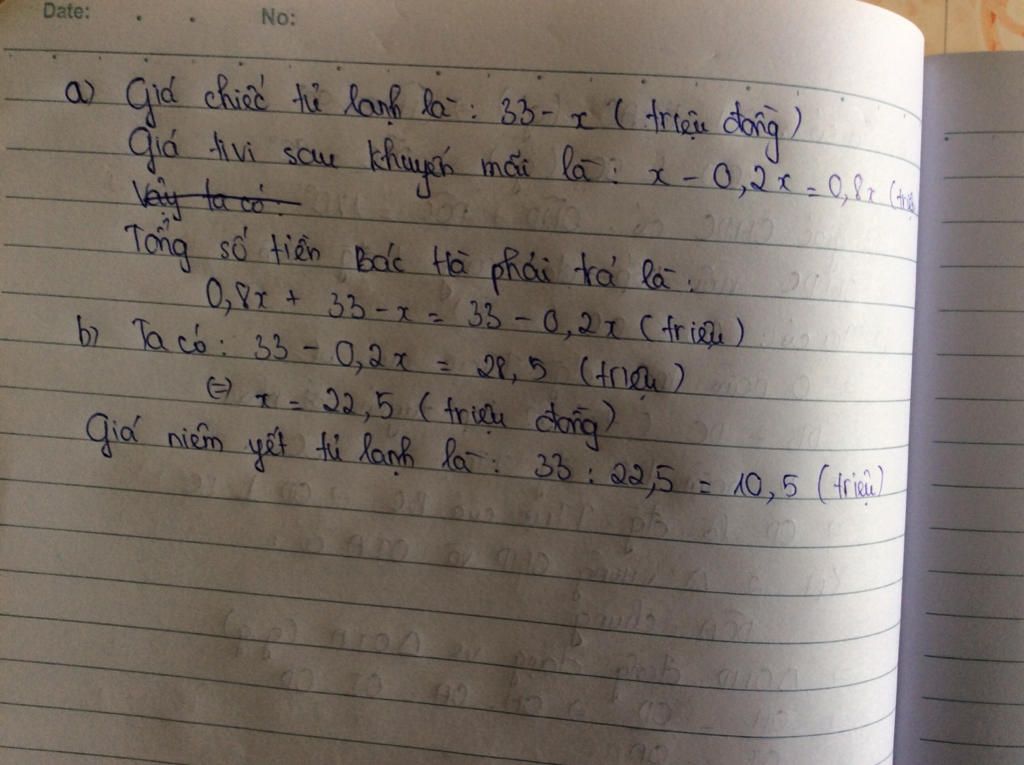 Date: . .
No:
a) Giá chiếc tủ lạnh là : 33 - x ( triệu đồng )
Giá tivi sau khuyến mãi là : x - 0,2x = 0,8x (triệu
Vậy ta có :
Tổng số tiền Bác Hà phải trả là :
0,8x + 33 - x = 33 - 0,2x ( triệu )
b) Ta có : 33 - 0,2x = 28,5 (triệu)
⇔ x = 22,5 ( triệu đồng )
Giá niêm yết tủ lạnh là : 33 : 22,5 = 10,5 ( triệu )